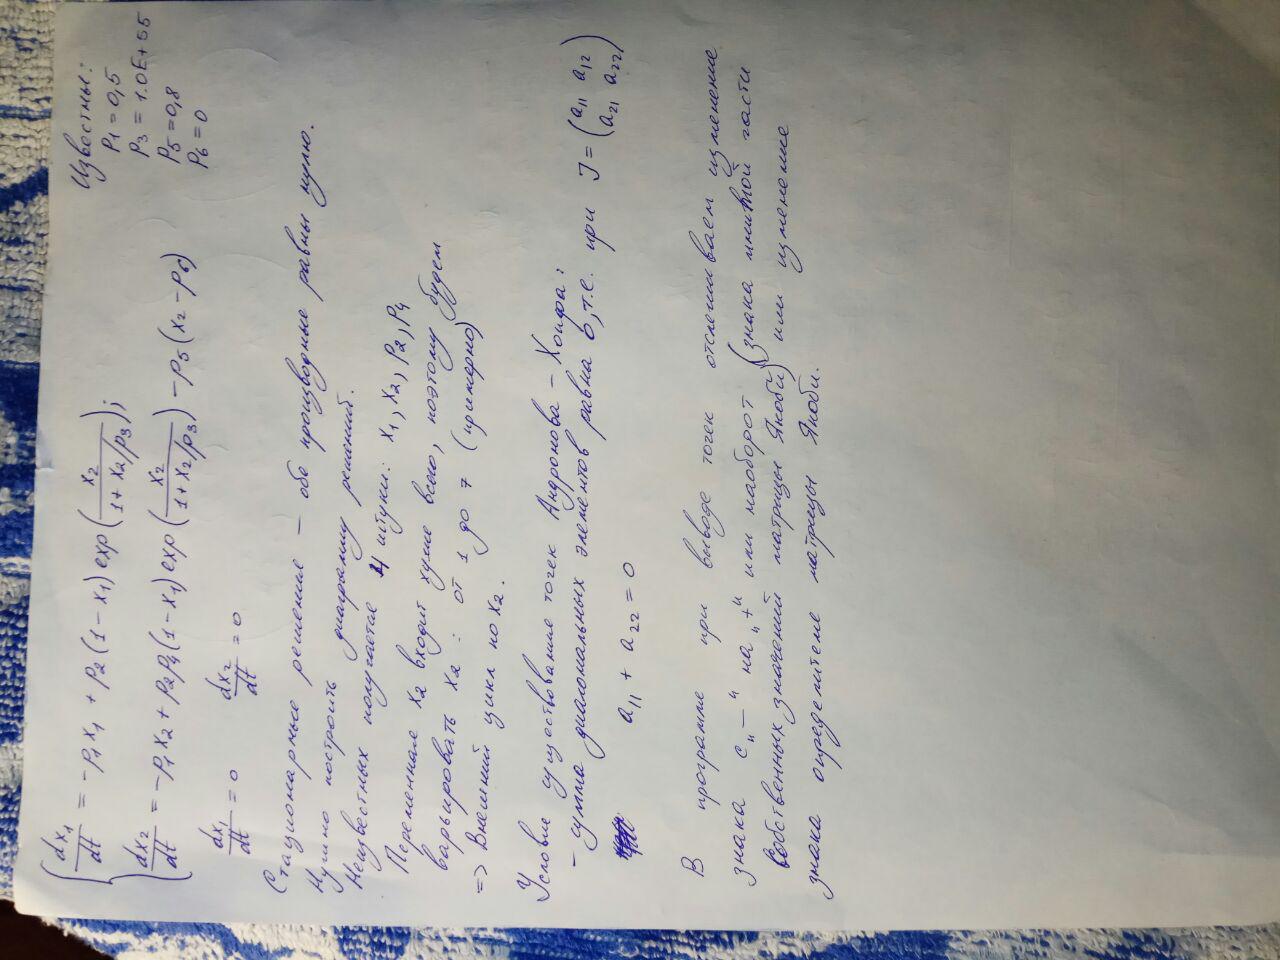 dx₁/dt = -p₁x₁ + p₂(1-x₁) exp(x₂/(1+x₂/p₃));
dx₂/dt = -p₁x₂ + p₂p₄(1-x₁) exp(x₂/(1+x₂/p₃)) - p₅(x₂-p₆)
Известны:
p₁ = 0,5
p₃ = 1.0E+55
p₅ = 0,8
p₆ = 0
dx₁/dt = 0 dx₂/dt = 0
Стационарные решения — обе производные равны нулю.
Нужно построить диаграмму решений.
Неизвестных получается 4 штуки: x₁, x₂, p₂, p₄
Переменная x₂ входит хуже всего, поэтому будем
варьировать x₂: от 1 до 7 (примерно)
=> Внешний цикл по x₂.
Условие существования точек Андронова – Хопфа:
- сумма диагональных элементов равна 0, т.е. при J = (a₁₁ a₁₂
a₂₁ a₂₂)
a₁₁ + a₂₂ = 0
В программе при выводе точек отслеживаем изменение
знака с „–" на „+" или наоборот (знака мнимой части
собственных значений матрицы Якоби) или изменение
знака определителя матрицы Якоби.